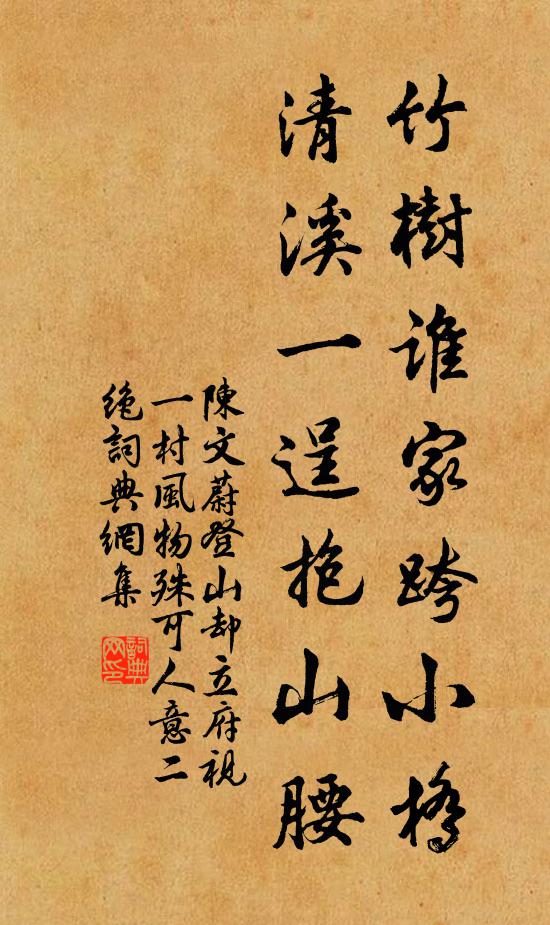 竹樹誰家跨小橋
清溪一逕抱山腰
陳文蔚登山却立府視
一村風物殊可人意二
絶詞典網集
詞典
网印